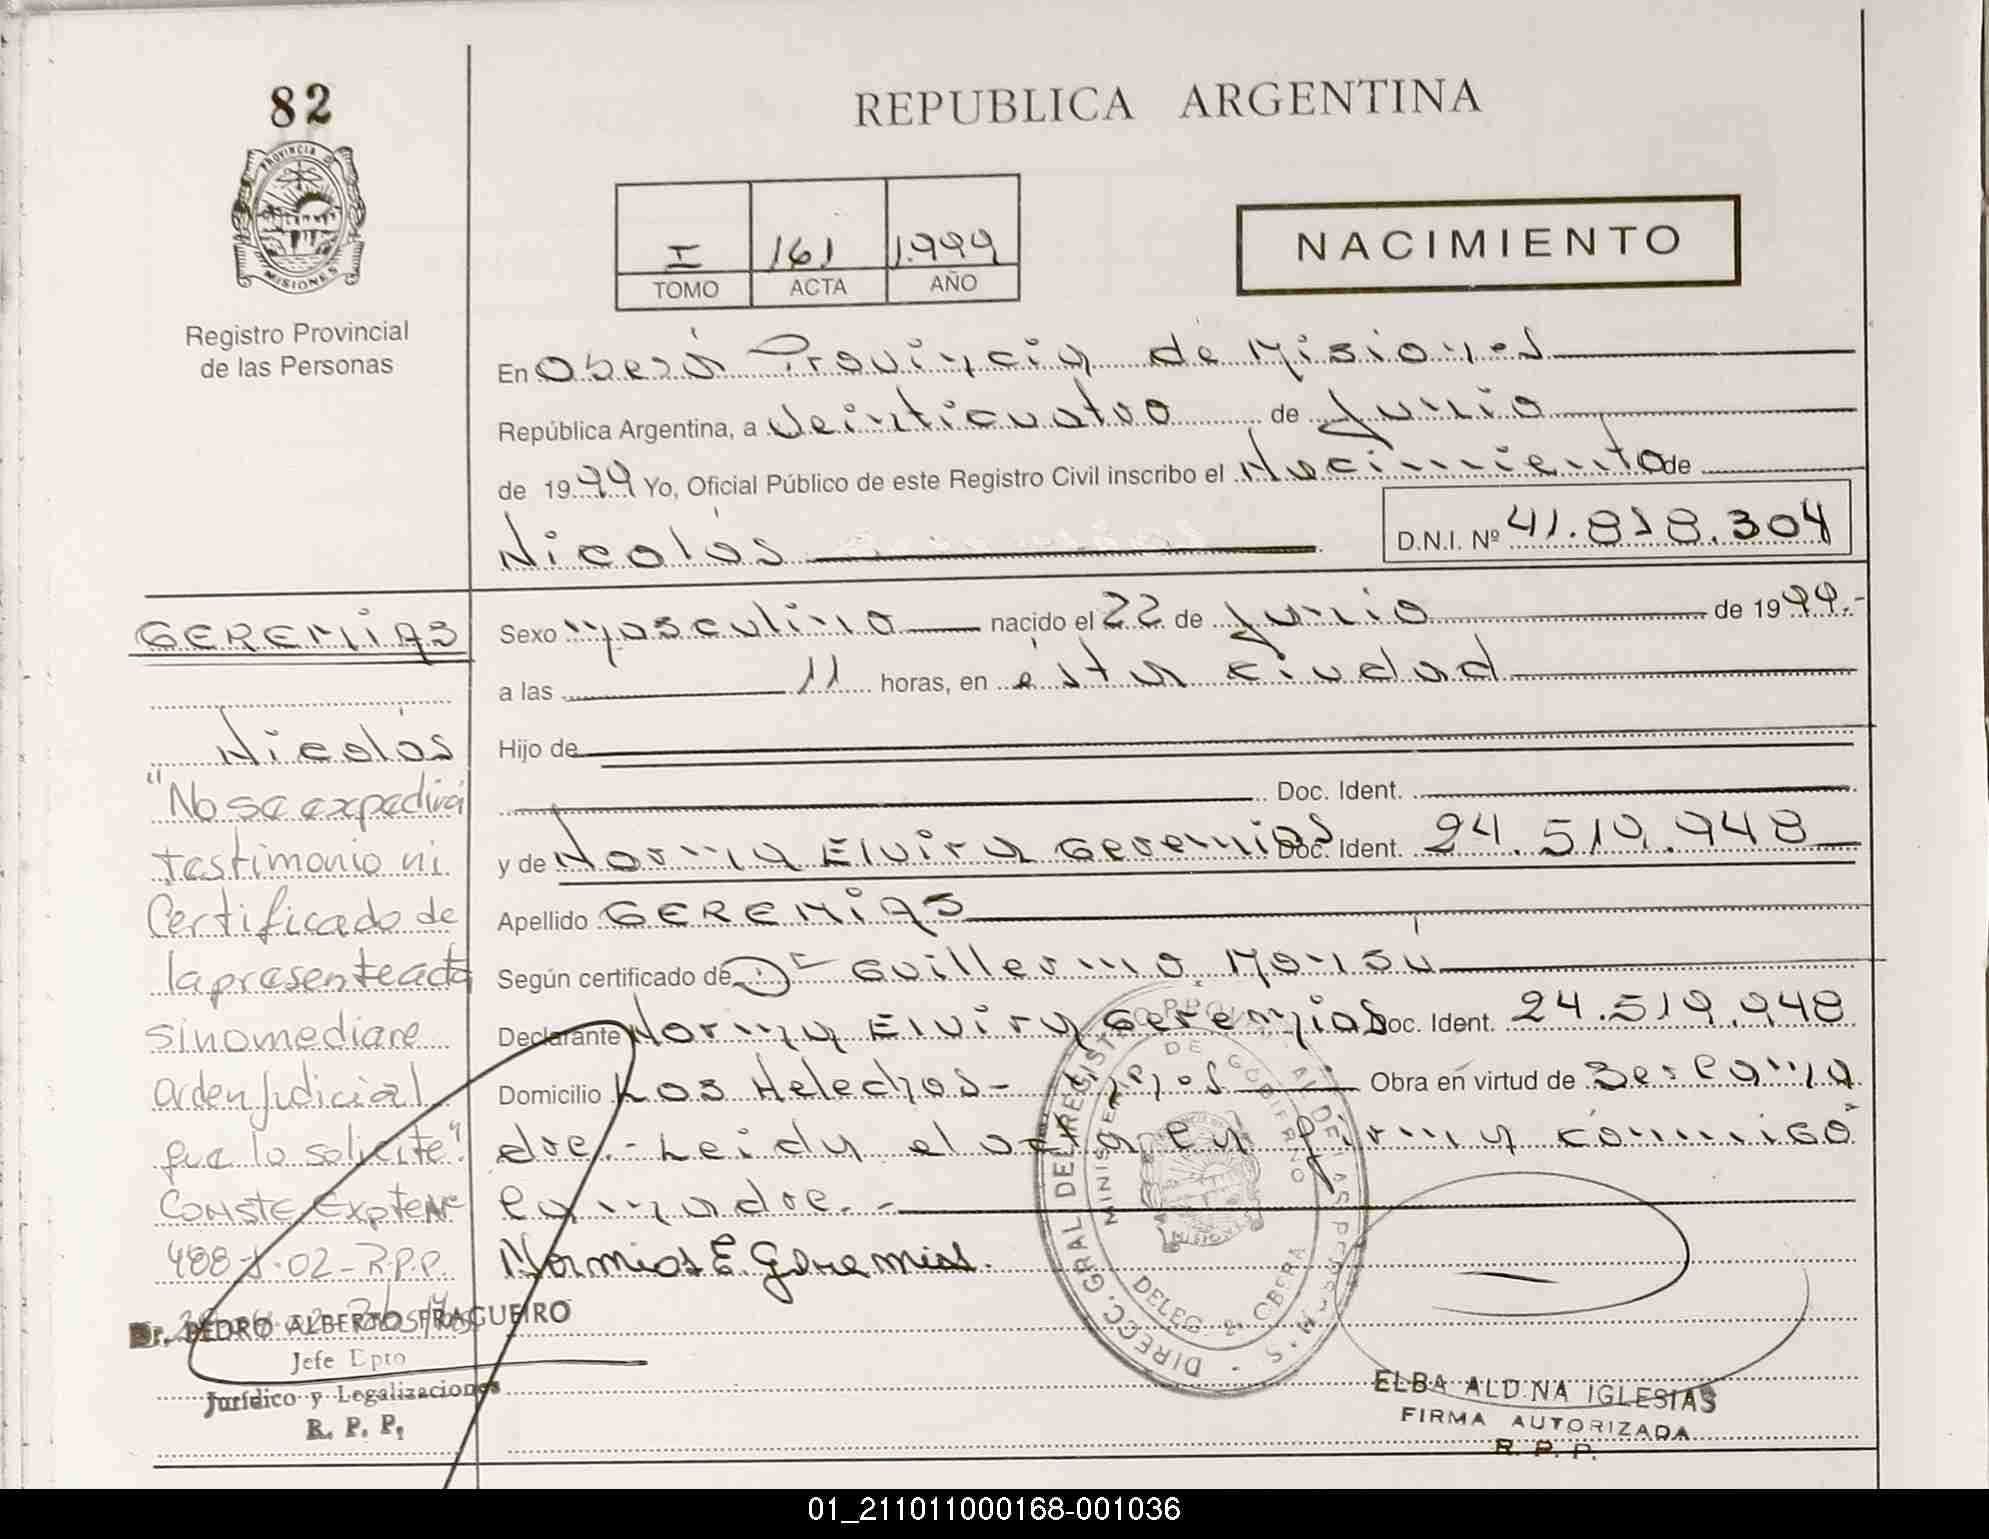 82
PROVINCIA DE
MISIONES
Registro Provincial
de las Personas
REPUBLICA ARGENTINA
I 161 1.999
TOMO ACTA AÑO
NACIMIENTO
En Oberá Provincia de Misiones
República Argentina, a Veinticuatro de Junio
de 1999 Yo, Oficial Público de este Registro Civil inscribo el Nacimiento de
Nicolás
D.N.I. Nº 41.818.304
GEREMIAS
Nicolás
"No se expedirá
testimonio ni
Certificado de
la presente acta
sino mediare
orden Judicial
que lo solicite".
CONSTE Expte Nº
488-J-02-R.P.P.
Dr. PEDRO ALBERTO FRAGUEIRO
Jefe Dpto
Jurídico y Legalizaciones
R. P. P.
Sexo masculino nacido el 22 de Junio de 1999.-
a las 11 horas, en ésta ciudad
Hijo de
Doc. Ident.
y de Norma Elvira Geremias Doc. Ident. 24.519.948
Apellido GEREMIAS
Según certificado de Dr Guillermo Monsú
Declarante Norma Elvira Geremias Doc. Ident. 24.519.948
Domicilio Los Helechos- Mnes Obra en virtud de Ser la ma
dre.- Leida el acta la firma conmigo
la madre.-
Norma E Geremias.
DIRECC. GRAL DEL REGISTRO PROVINCIAL DE LAS PERSONAS - M S
MINISTERIO DE GOBIERNO
DELEG. OBERA
ELBA ALDINA IGLESIAS
FIRMA AUTORIZADA
R. P. P.
01_211011000168-001036